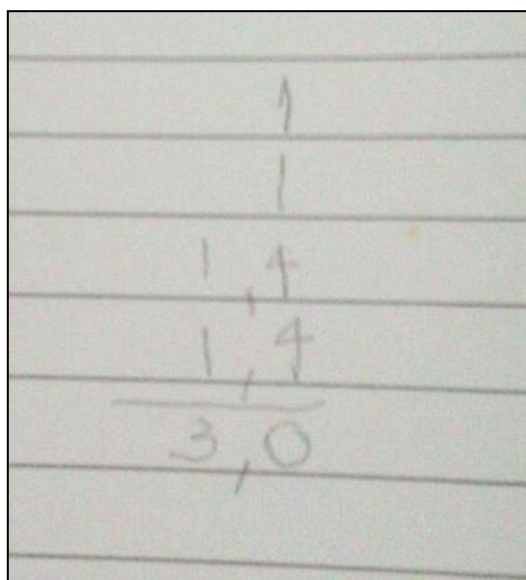 1
1
1,4
1,4
3,0